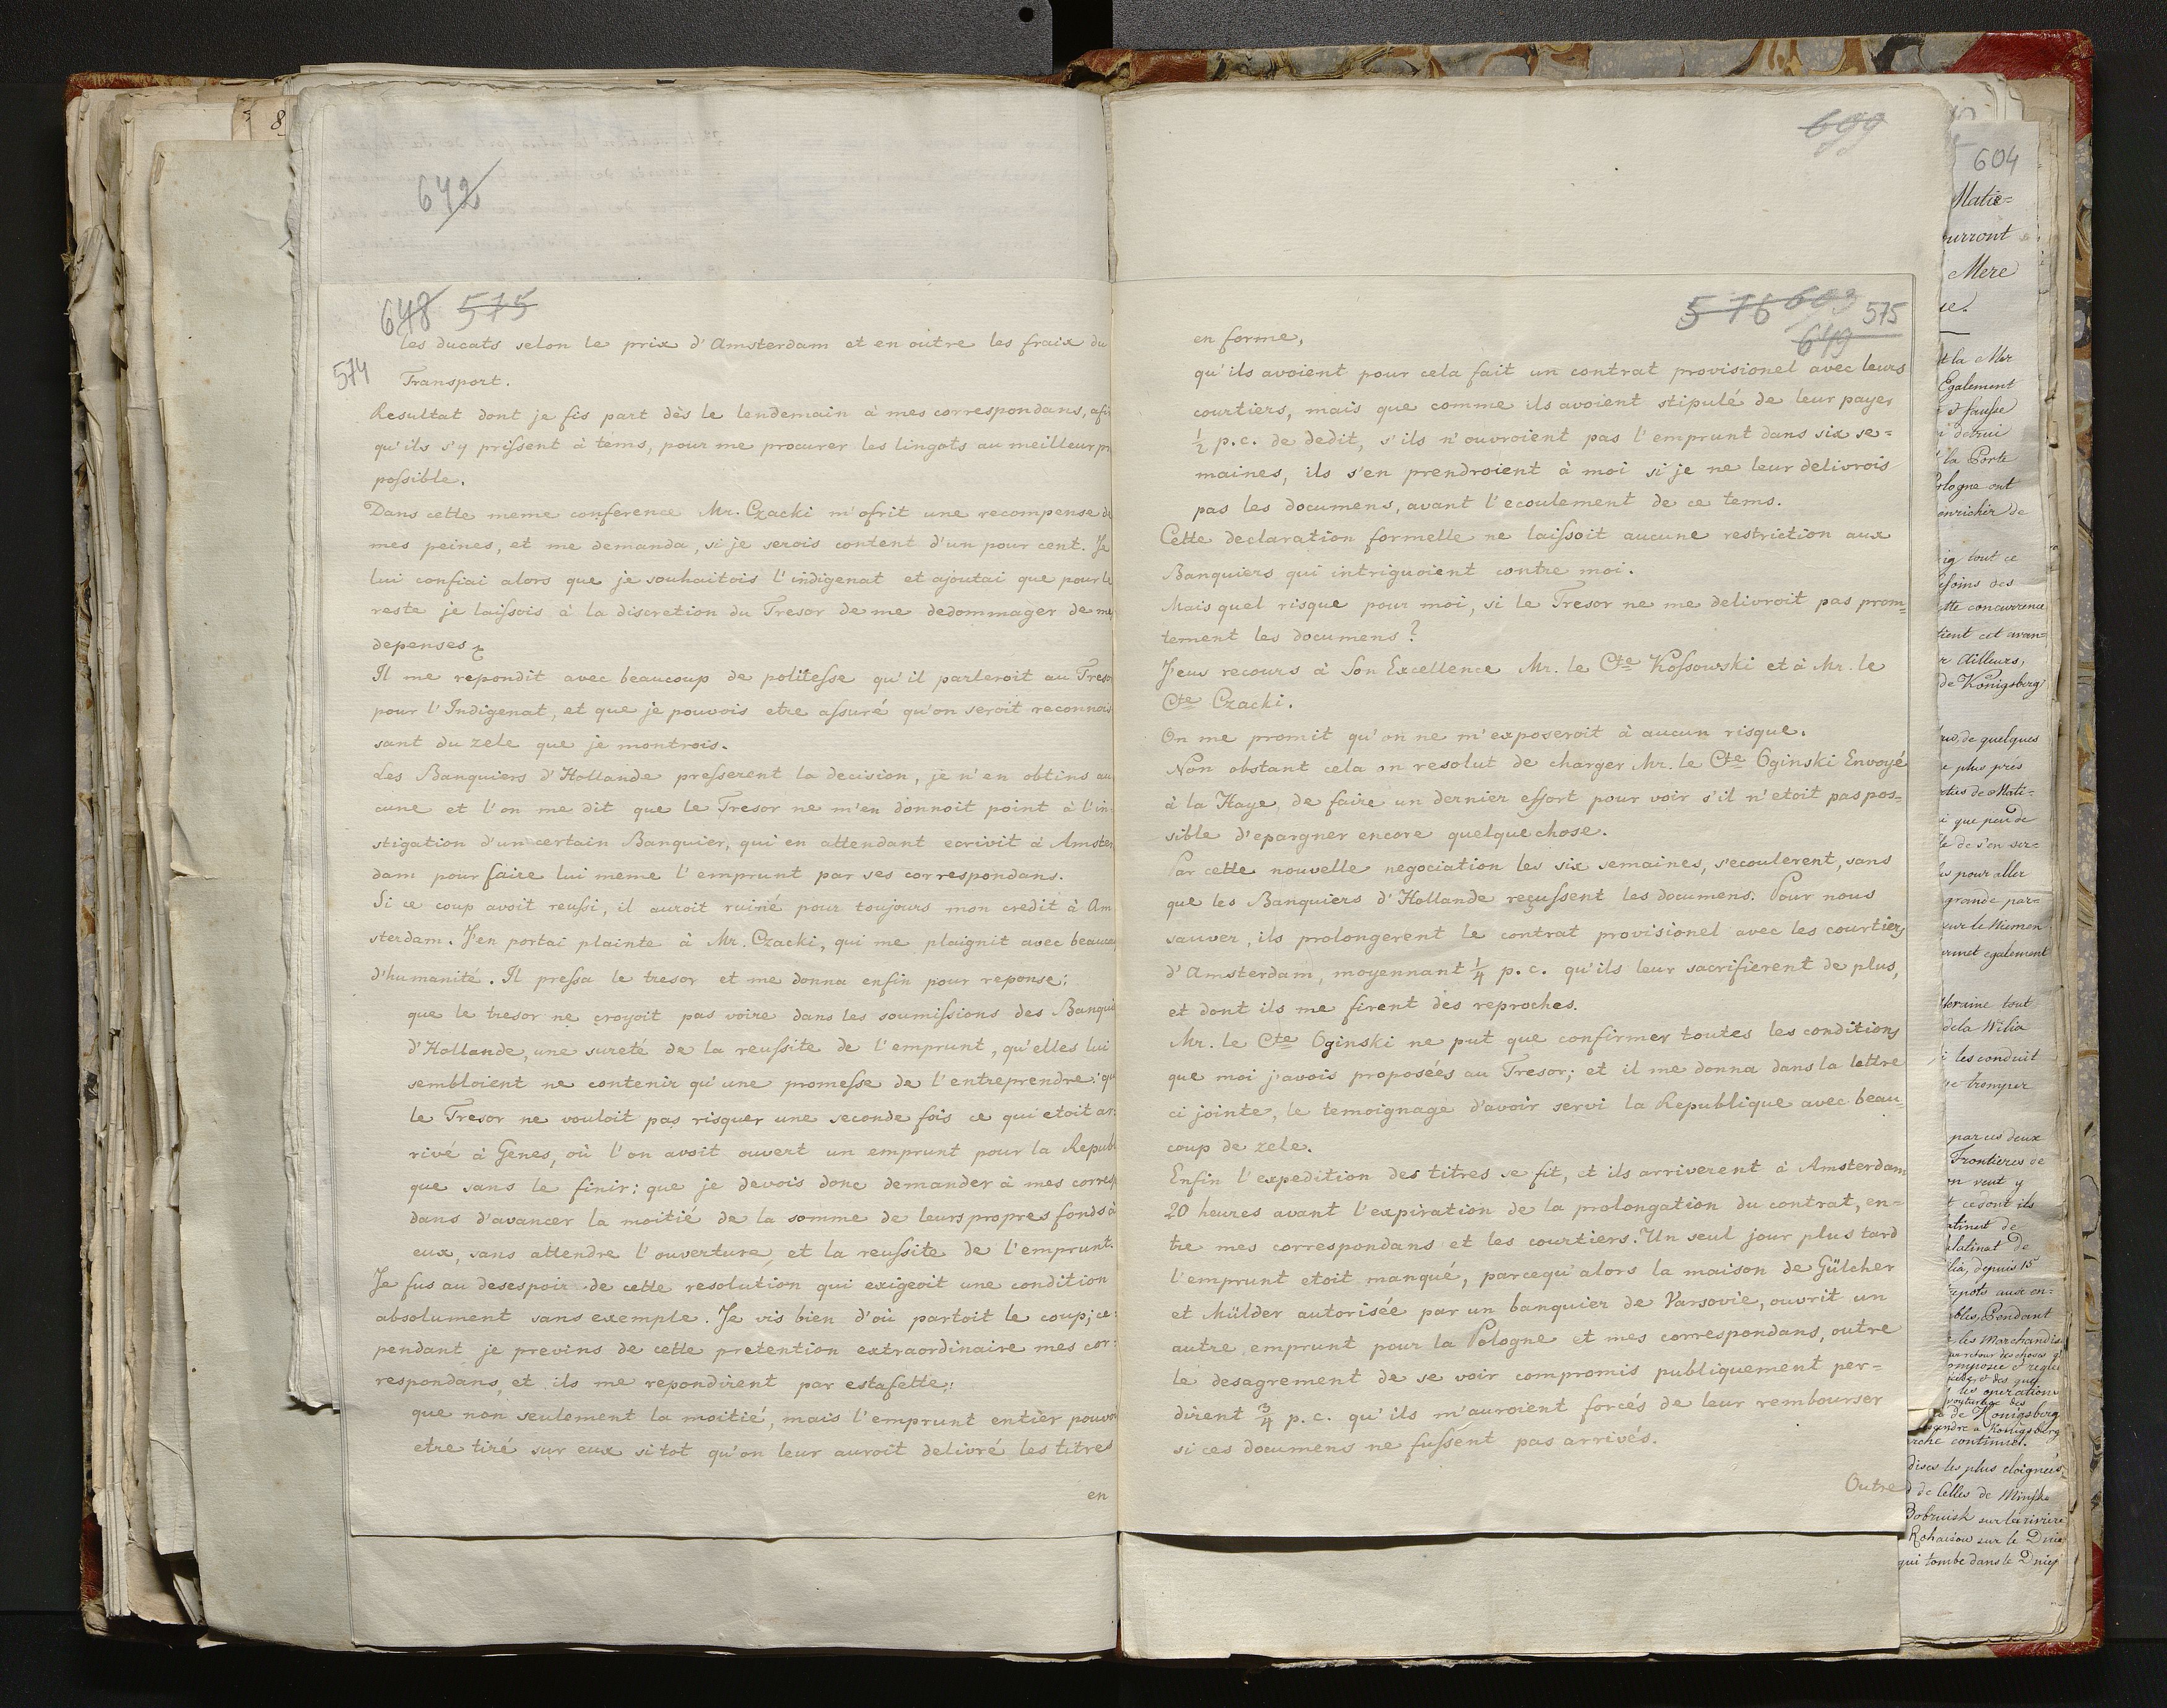 8
642
648 575
574
les ducats selon le prix d'Amsterdam et en outre les fraix du
Transport.
Resultat dont je fis part dès le lendemain à mes correspondans, afi
qu'ils s'y prissent à tems, pour me procurer les lingots au meilleur pr
possible.
Dans cette meme conference Mr. Czacki m'ofrit une recompense de
mes peines, et me demanda, si je serois content d'un pour cent. Je
lui confiai alors que je souhaitois l'indigenat et ajoutai que pour le
reste je laissois à la discretion du Tresor de me dedommager de me
depenses
Il me repondit avec beaucoup de politesse qu'il parleroit au Treso
pour l'Indigenat, et que je pouvois etre assuré qu'on seroit reconnois
sant du zele que je montrois.
Les Banquiers d'Hollande presserent la decision, je n'en obtins au
cune et l'on me dit que le Tresor ne m'en donnoit point à l'in
stigation d'un certain Banquier, qui en attendant ecrivit à Amster
dam pour faire lui meme l'emprunt par ses correspondans.
Si ce coup avoit reussi, il auroit ruiné pour toujours mon credit à Am
sterdam. J'en portai plainte à Mr. Czacki, qui me plaignit avec beaucou
d'humanité. Il pressa le tresor et me donna enfin pour reponse:
que le tresor ne croyoit pas voire dans les soumissions des Banqui
d'Hollande, une sureté de la reussite de l'emprunt, qu'elles lui
sembloient ne contenir qu'une promesse de l'entreprendre: qu
le Tresor ne vouloit pas risquer une seconde fois ce qui etoit ar
rivé à Genes, où l'on avoit ouvert un emprunt pour la Republ
que sans le finir: que je devois donc demander à mes corresp
dans d'avancer la moitié de la somme de leurs propres fonds à
eux, sans attendre l'ouverture, et la reussite de l'emprunt.
Je fus au desespoir de cette resolution qui exigeoit une condition
absolument sans exemple. Je vis bien d'où partoit le coup; ce
pendant je previns de cette pretention extraordinaire mes cor:
respondans, et ils me repondirent par estafette:
que non seulement la moitié, mais l'emprunt entier pouvoi
etre tiré sur eux sitot qu'on leur auroit delivré les titres
en
699
576 603 575
649
en forme,
qu'ils avoient pour cela fait un contrat provisionel avec leurs
courtiers, mais que comme ils avoient stipulé de leur payer
1/2 p.c. de dedit, s'ils n'ouvroient pas l'emprunt dans six se=
maines, ils s'en prendroient à moi si je ne leur delivrois
pas les documens, avant l'ecoulement de ce tems.
Cette declaration formelle ne laissoit aucune restriction aux
Banquiers qui intriguoient contre moi.
Mais quel risque pour moi, si le Tresor ne me delivroit pas prom=
tement les documens?
J'eus recours à Son Excellence Mr. le Cte Kossowski et à Mr. le
Cte Czacki.
On me promit qu'on ne m'exposeroit à aucun risque.
Non obstant cela on resolut de charger Mr. le Cte Oginski Envoyé
à la Haye, de faire un dernier effort pour voir s'il n'etoit pas pos=
sible d'epargner encore quelque chose.
Par cette nouvelle negociation les six semaines, s'ecoulerent, sans
que les Banquiers d'Hollande reçussent les documens. Pour nous
sauver, ils prolongerent le contrat provisionel avec les courtiers
d'Amsterdam, moyennant 1/4 p.c. qu'ils leur sacrifierent de plus,
et dont ils me firent des reproches.
Mr. le Cte Oginski ne put que confirmer toutes les conditions
que moi j'avois proposeés au Tresor; et il me donna dans la lettre
ci jointe, le temoignage d'avoir servi la Republique avec beau=
coup de zele.
Enfin l'expedition des titres se fit, et ils arriverent à Amsterdam
20 heures avant l'expiration de la prolongation du contrat, en=
tre mes correspondans et les courtiers. Un seul jour plus tard
l'emprunt etoit manqué, parcequ'alors la maison de Gülcher
et Mülder autorisée par un banquier de Varsovie, ouvrit un
autre emprunt pour la Pologne et mes correspondans, outre
le desagrement de se voir compromis publiquement per=
dirent 3/4 p.c. qu'ils m'auroient forcés de leur rembourser
si ces documens ne fussent pas arrivés.
Outre
604
Matie=
urront
Mere
se.
t la Mer
Egalement
la Porte
ologne ont
enrichir de
ig tout ce
esoins des
tte concurrence
tient cet avan=
r Ailleurs,
de Königsberg
de quelques
e plus près
rties de Mati=
i que peu de
le de s'en ser=
s pour aller
grande par=
sur le Niemen
ermet egalement
kraine tout
de la Wilia
i les conduit
se tromper
par ces deux
Frontieres de
on veut y
t ce dont ils
atinat de
alatinat de
depuis 15
epots aux en=
bles, Pendant
les Marchandis
les operations
de Konigsberg
arche continuel.
dises les plus eloigneés
de Celles de Minsk
Bobruisk sur la riviere
Rohaczow sur le Dnie
qui tombe dans le Dniep